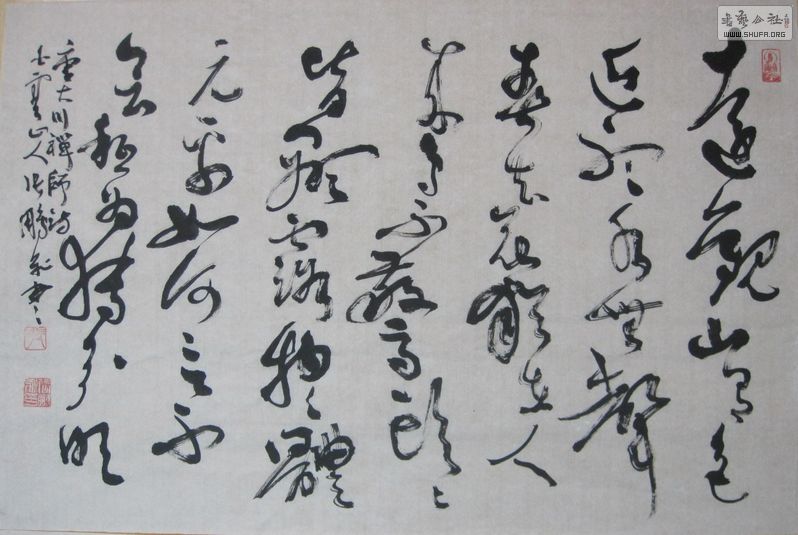 書藝公社
WWW.SHUFA.ORG
遠觀山有色
近聽水無聲
春去花猶在人
來鳥不驚頭〻
皆顯露物〻體
元平如何言不
會秖為特分明
大川禪師詩
山人張鵬書